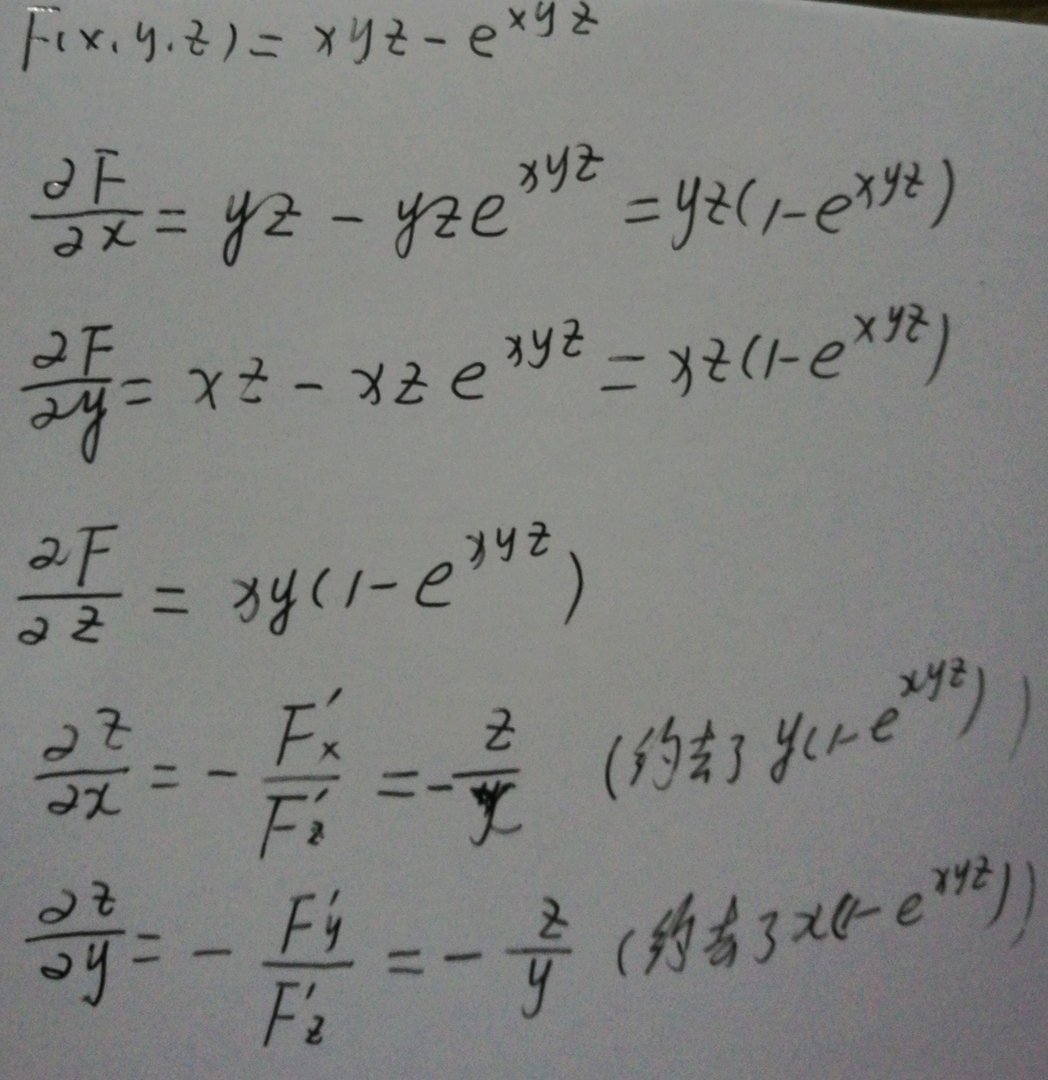 F(x,y,z) = xyz - e^{xyz}
∂F/∂x = yz - yze^{xyz} = yz(1-e^{xyz})
∂F/∂y = xz - xze^{xyz} = xz(1-e^{xyz})
∂F/∂z = xy(1-e^{xyz})
∂z/∂x = - F'x/F'z = - z/x (约去了y(1-e^{xyz}))
∂z/∂y = - F'y/F'z = - z/y (约去了x(1-e^{xyz}))